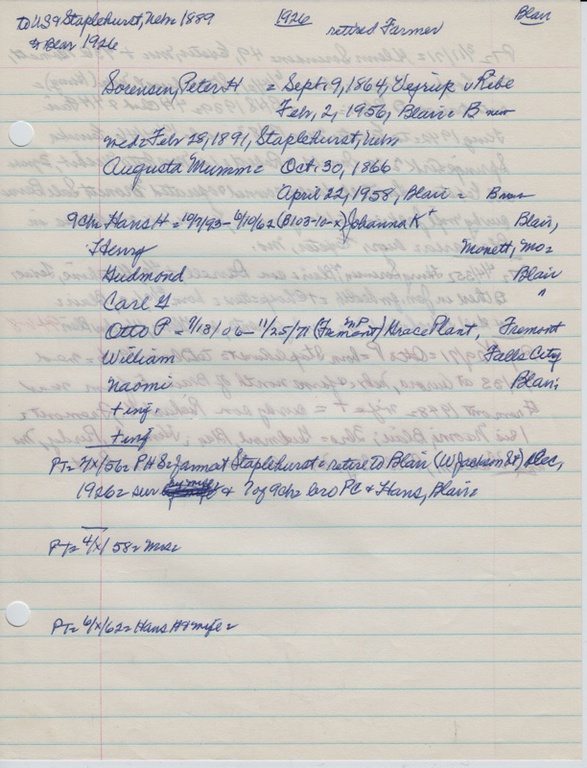 to USA Staplehurst, Nebr 1889 1926 retired Farmer Blair
& Blair 1926
Sorensen, Peter H = Sept. 9, 1864, Vejrup v Ribe
Feb, 2, 1956, Blair = B
med = Feb 28, 1891, Staplehurst, Nebr
Augusta Mumm = Oct. 30, 1866
April 22, 1958, Blair =
9 Chr Hans H = 10/7/93 - 6/10/62 (B103-10-x) Johanna K + Blair,
Henry Monett, Mo =
Gudmond Blair
Carl G "
Otto P = 7/13/06 - 11/25/71 (Fremont) Grace Plant, Fremont
William Falls City
Naomi Blair
+ inf.
+ inf
PT = 2/x/56 = PH Se farm at Staplehurst = retire to Blair (W Jackson St) Dec,
1926 = sur & 7 of 9 chr = bro PC & Hans, Blair =
PT = 4/x/58 = Mrs =
PT = 6/x/62 = Hans H & wife =